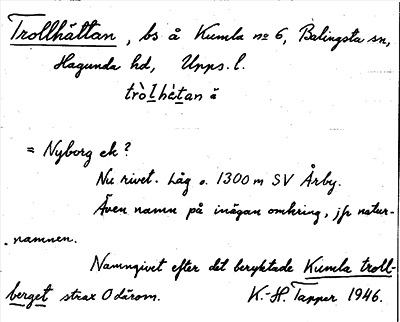 Trollhättan, bs å Kumla no 6, Balingsta sn,
Hagunda hd, Upps. l.
tròlhètan ä
= Nyborg ek?
Nu rivet. Låg o. 1300 m SV Årby.
Även namn på inägan omkring, jfr natur-
namnen.
Namngivet efter det beryktade Kumla troll-
berget strax O därom. K.-H. Tapper 1946.